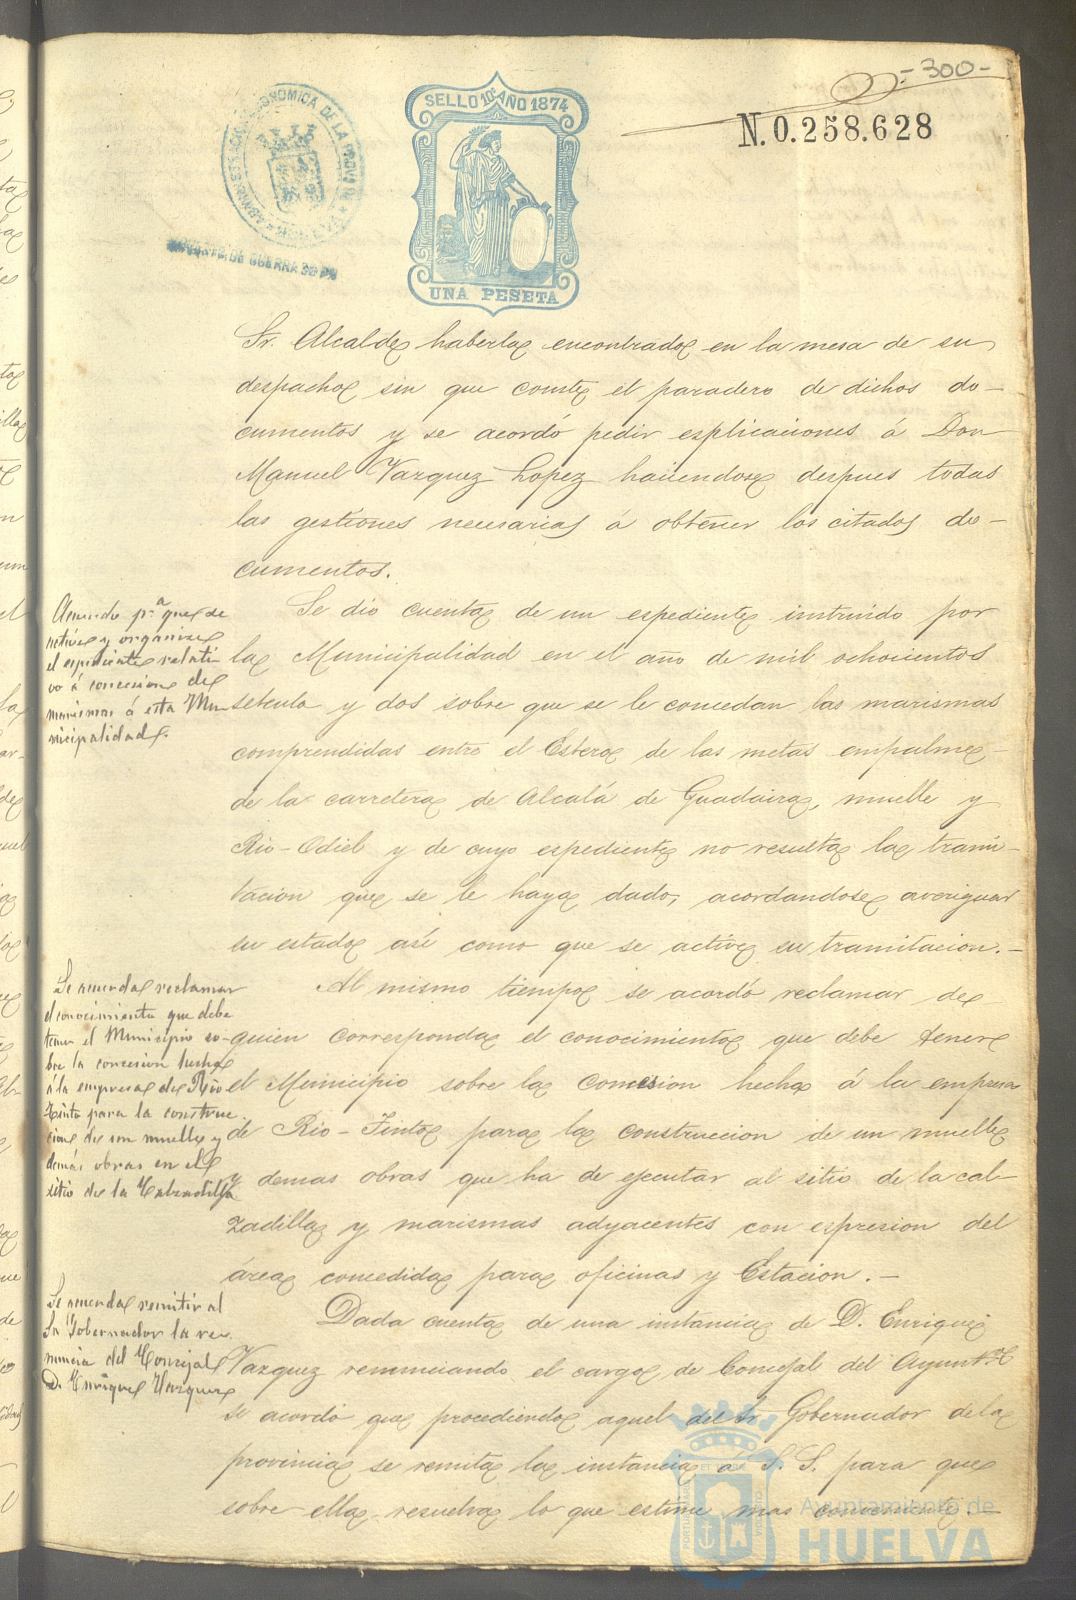 - 300 -
N. 0.258.628
SELLO 10º AÑO 1874
UNA PESETA
ADMINISTRACION ECONOMICA DE LA PROVINCIA
IMPUESTO DE GUERRA
Sr. Alcalde haberla encontrado en la mesa de su
despacho sin que conste el paradero de dichos do-
cumentos y se acordó pedir esplicaciones á Don
Manuel Vazquez Lopez haciendose despues todas
las gestiones necesarias á obtener los citados do-
cumentos.
Acuerdo p.ª que se
active y organise
el espediente relati-
vo á concesion de
marismas á esta Mu-
nicipalidad.
Se dió cuenta de un espediente instruido por
la Municipalidad en el año de mil ochocientos
setenta y dos sobre que se le concedan las marismas
comprendidas entre el Estero de las metas empalme
de la carretera de Alcalá de Guadaira, muelle y
Rio-Odiel y de cuyo espediente no resulta la trami-
tacion que se le haya dado, acordandose averiguar
su estado así como que se active su tramitacion.-
Se acuerda reclamar
el conocimiento que debe
tener el Municipio so-
bre la concesion hecha
á la empresa de Rio
Tinto para la construc-
cion de un muelle y
demás obras en el
sitio de la Calzadilla
Al mismo tiempo se acordó reclamar de
quien corresponda el conocimiento que debe tener
el Municipio sobre la concesion hecha á la empresa
de Rio-Tinto para la construccion de un muelle
y demas obras que ha de ejecutar al sitio de la cal-
zadilla y marismas adyacentes con espresion del
área concedida para oficinas y Estacion.-
Se acuerda remitir al
Sr Gobernador la re-
nuncia del Concejal
D. Enrique Vazquez
Dada cuenta de una instancia de D. Enrique
Vazquez renunciando el cargo de Concejal del Ayunt.º
se acordó que procediendo aquel del Sr. Gobernador de la
provincia se remita la instancia á S. S. para que
sobre ella resuelva lo que estime mas conveniente.-
Ayuntamiento de
HUELVA